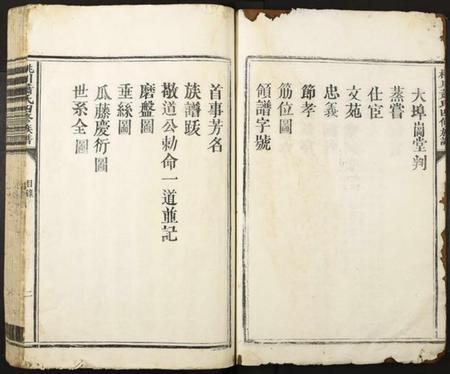 大埠崗堂判
蒸嘗
仕宦
文苑
忠義
節孝
筋位圖
領譜字號
首事芳名
族譜跋
敬道公勅命一道並記
磨盤圖
垂絲圖
瓜藤慶衍圖
世系全圖
氏四修族譜
目錄
二